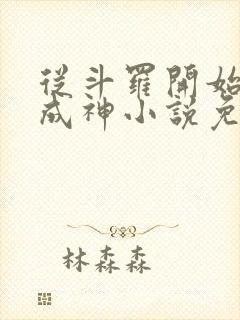 從斗羅開始
成神小說免
林森森